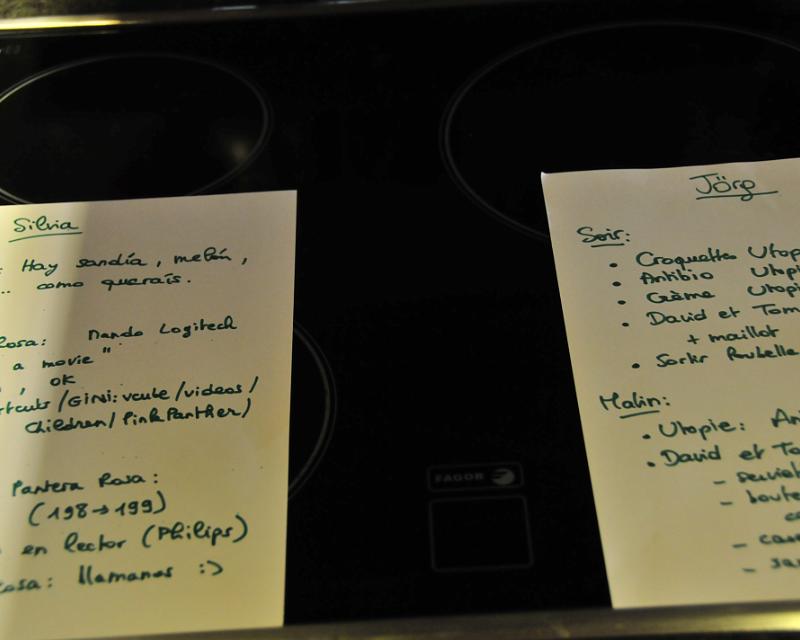 Silvia
: Hay sandía, melón,
.. como queráis.
Rosa: Mando Logitech
a movie"
, OK
/Gini:vcute/videos/
children/PinkPanther)
Pantera Rosa:
(198→199)
en lector (Philips)
casa: llamanos :)
Jörg
Soir:
• Croquettes Utop
• Antibio Utopi
• Crème Utopi
• David et Tom
+ maillot
• Sortir Poubelle
Matin:
• Utopie: An
• David et To
- serviet
- boute
- cas
FAGOR